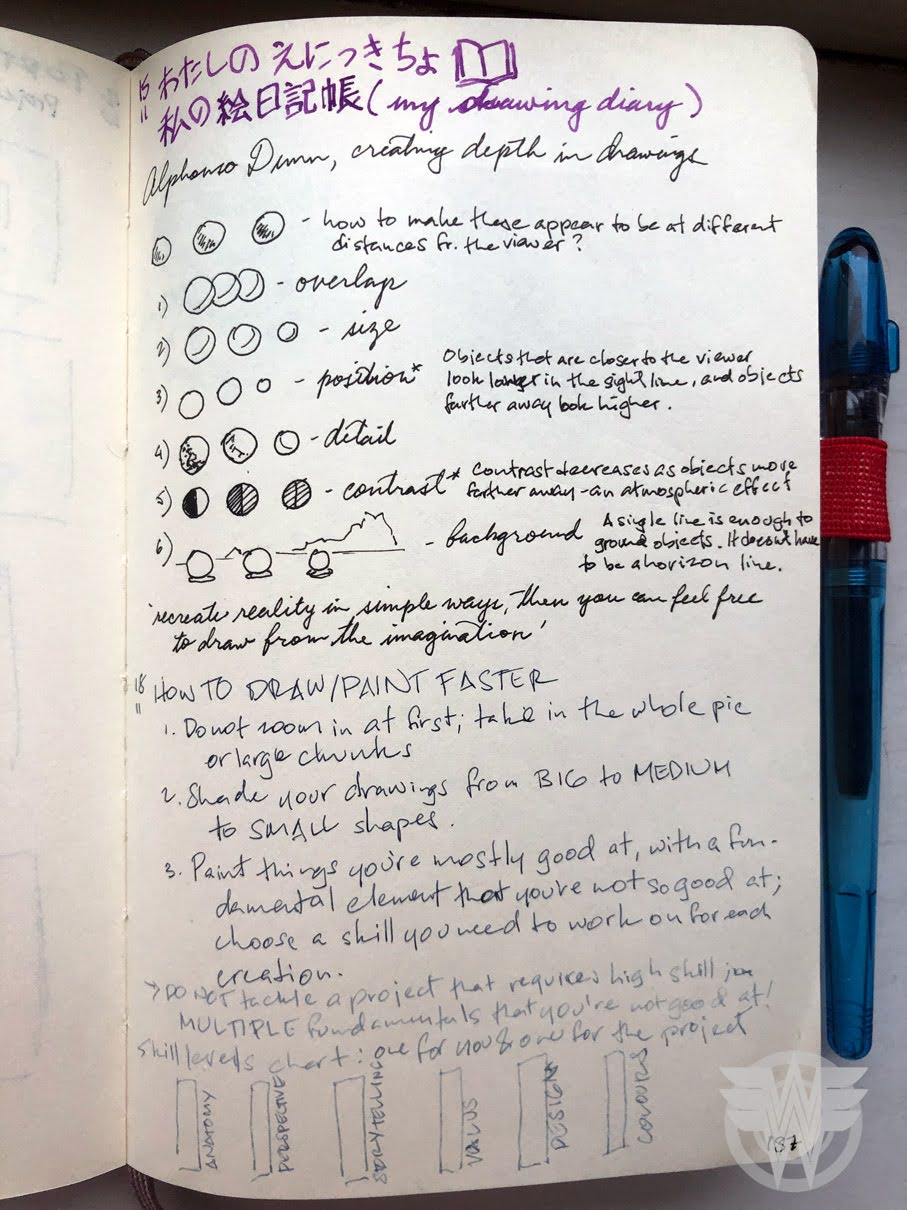 15
11
わたしの えにっきちょ
私の絵日記帳 (my drawing diary)
Alphonso Dunn, creating depth in drawings
- how to make these appear to be at different
distances fr. the viewer?
1) - overlap
2) - size
3) - position* Objects that are closer to the viewer
look larger in the sight line, and objects
farther away look higher.
4) - detail
5) - contrast* Contrast decreases as objects move
farther away - an atmospheric effect
6) - background A single line is enough to
ground objects. It doesn't have
to be a horizon line.
'recreate reality in simple ways, then you can feel free
to draw from the imagination'
18
11
HOW TO DRAW/PAINT FASTER
1. Do not zoom in at first; take in the whole pic
or large chunks
2. Shade your drawings from BIG to MEDIUM
to SMALL shapes.
3. Paint things you're mostly good at, with a fun-
damental element that you're not so good at;
choose a skill you need to work on for each
creation.
→ DO NOT tackle a project that requires high skill in
MULTIPLE fundamentals that you're not good at!
Skill levels chart: one for you & one for the project
ANATOMY
PERSPECTIVE
STORYTELLING
VALUS
DESIGN
COLOURS
187
W